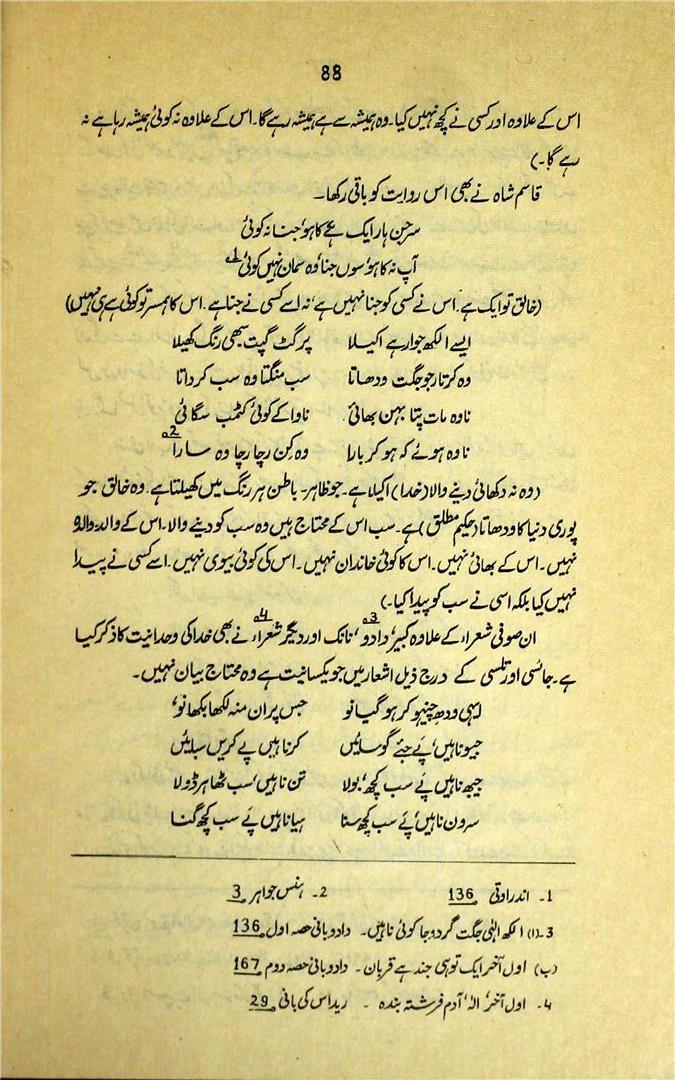 88
اس کے علاوہ اور کسی نے کچھ نہیں کیا۔ وہ ہمیشہ سے ہے ہمیشہ رہے گا۔ اس کے علاوہ نہ کوئی ہمیشہ رہا ہے نہ
رہے گا۔)
قاسم شاہ نے بھی اس روایت کو باقی رکھا۔
سرجن ہار ایک ہے کاہو، جنا نہ کوئی
آپ نہ کاہو سوں جنا، وہ سمان نہیں کوئی 1؎
(خالق تو ایک ہے۔ اس نے کسی کو جنا نہیں ہے، نہ اسے کسی نے جنا ہے۔ اس کا ہمسر تو کوئی ہے ہی نہیں)
ایسے الکھ جو ارہے اکیلا پرگٹ گپت سبھی رنگ کھیلا
وہ کرتار جو جگت ودھاتا سب منگتا وہ سب کر داتا
نا وہ مات پتا بہن بھائی نا وا کے کوئی کٹمب سگائی
نا وہ ہوئے کہ ہو کر بارا وہ کن رچا رچا وہ سارا 2؎
(وہ نہ دکھائی دینے والا (خدا) اکیلا ہے۔ جو ظاہر۔ باطن ہر رنگ میں کھیلتا ہے۔ وہ خالق جو
پوری دنیا کا ودھاتا (حکیم مطلق) ہے۔ سب اس کے محتاج ہیں وہ سب کو دینے والا۔ اس کے والد، والدہ
نہیں۔ اس کے بھائی نہیں۔ اس کا کوئی خاندان نہیں۔ اس کی کوئی بیوی نہیں۔ اسے کسی نے پیدا
نہیں کیا بلکہ اسی نے سب کو پیدا کیا۔)
ان صوفی شعراء کے علاوہ کبیر، دادو 3؎، نانک اور دیگر شعراء 4؎ نے بھی خدا کی وحدانیت کا ذکر کیا
ہے۔ جائسی اور تلسی کے درج ذیل اشعار میں جو یکسانیت ہے وہ محتاج بیان نہیں۔
ایہی ودھ چینہو کر ہو گیانو جس پران منہ لکھا بکھانو،
جیو ناہیں، پے جئے گوسائیں کر ناہیں پے کریں سبائیں
جیبھ ناہیں پے سب کچھ، بولا تن ناہیں، سب ٹھاہر ڈولا
سرون ناہیں، پے سب کچھ سنا ہیا ناہیں پے سب کچھ گنا
1۔ اندراوتی 136 2۔ ہنس جواہر 3
3۔(ا) الکھ الہٰی جگت گر دوجا کوئی ناہیں۔ دادو بانی حصہ اول 136
(ب) اول آخر ایک توہی جند ہے قربان۔ دادو بانی حصہ دوم 167
4۔ اول آخر، الٰہ، آدم فرشتہ بندہ ۔ ریداس کی بانی 29